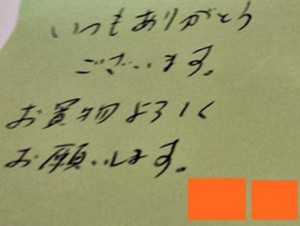 いつもありがとう
ございます。
お買物よろしく
お願いします。